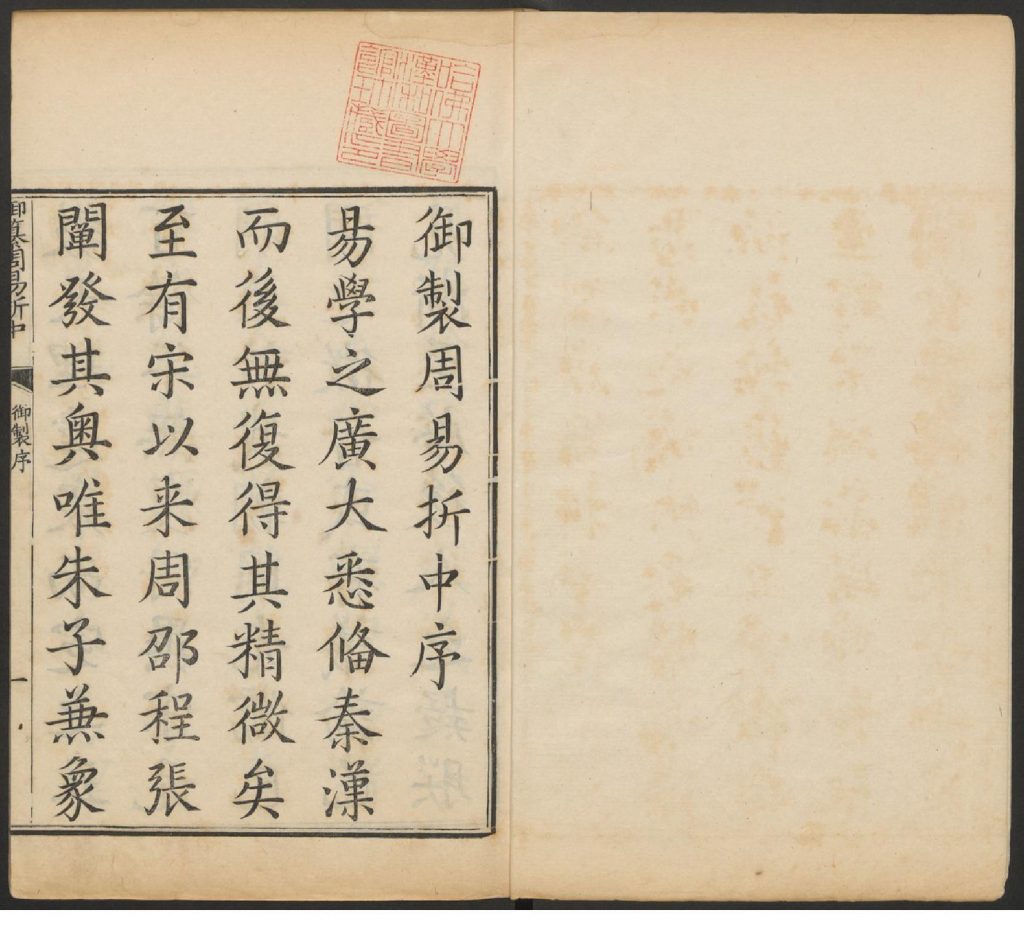 哈佛大學
漢和圖書
館珍藏印
御製周易折中序
易學之廣大悉俻秦漢
而後無復得其精微矣
至有宋以来周邵程張
闡發其奥唯朱子兼象
御纂周易折中
御製序
一